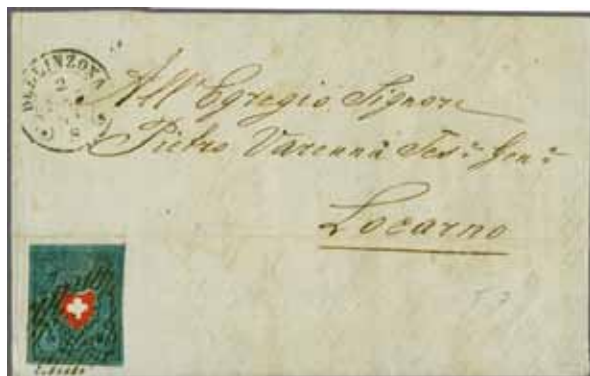 BELLINZONA
All' Egregio Signore
Pietro Varenna Tes.e Gen.e
Locarno